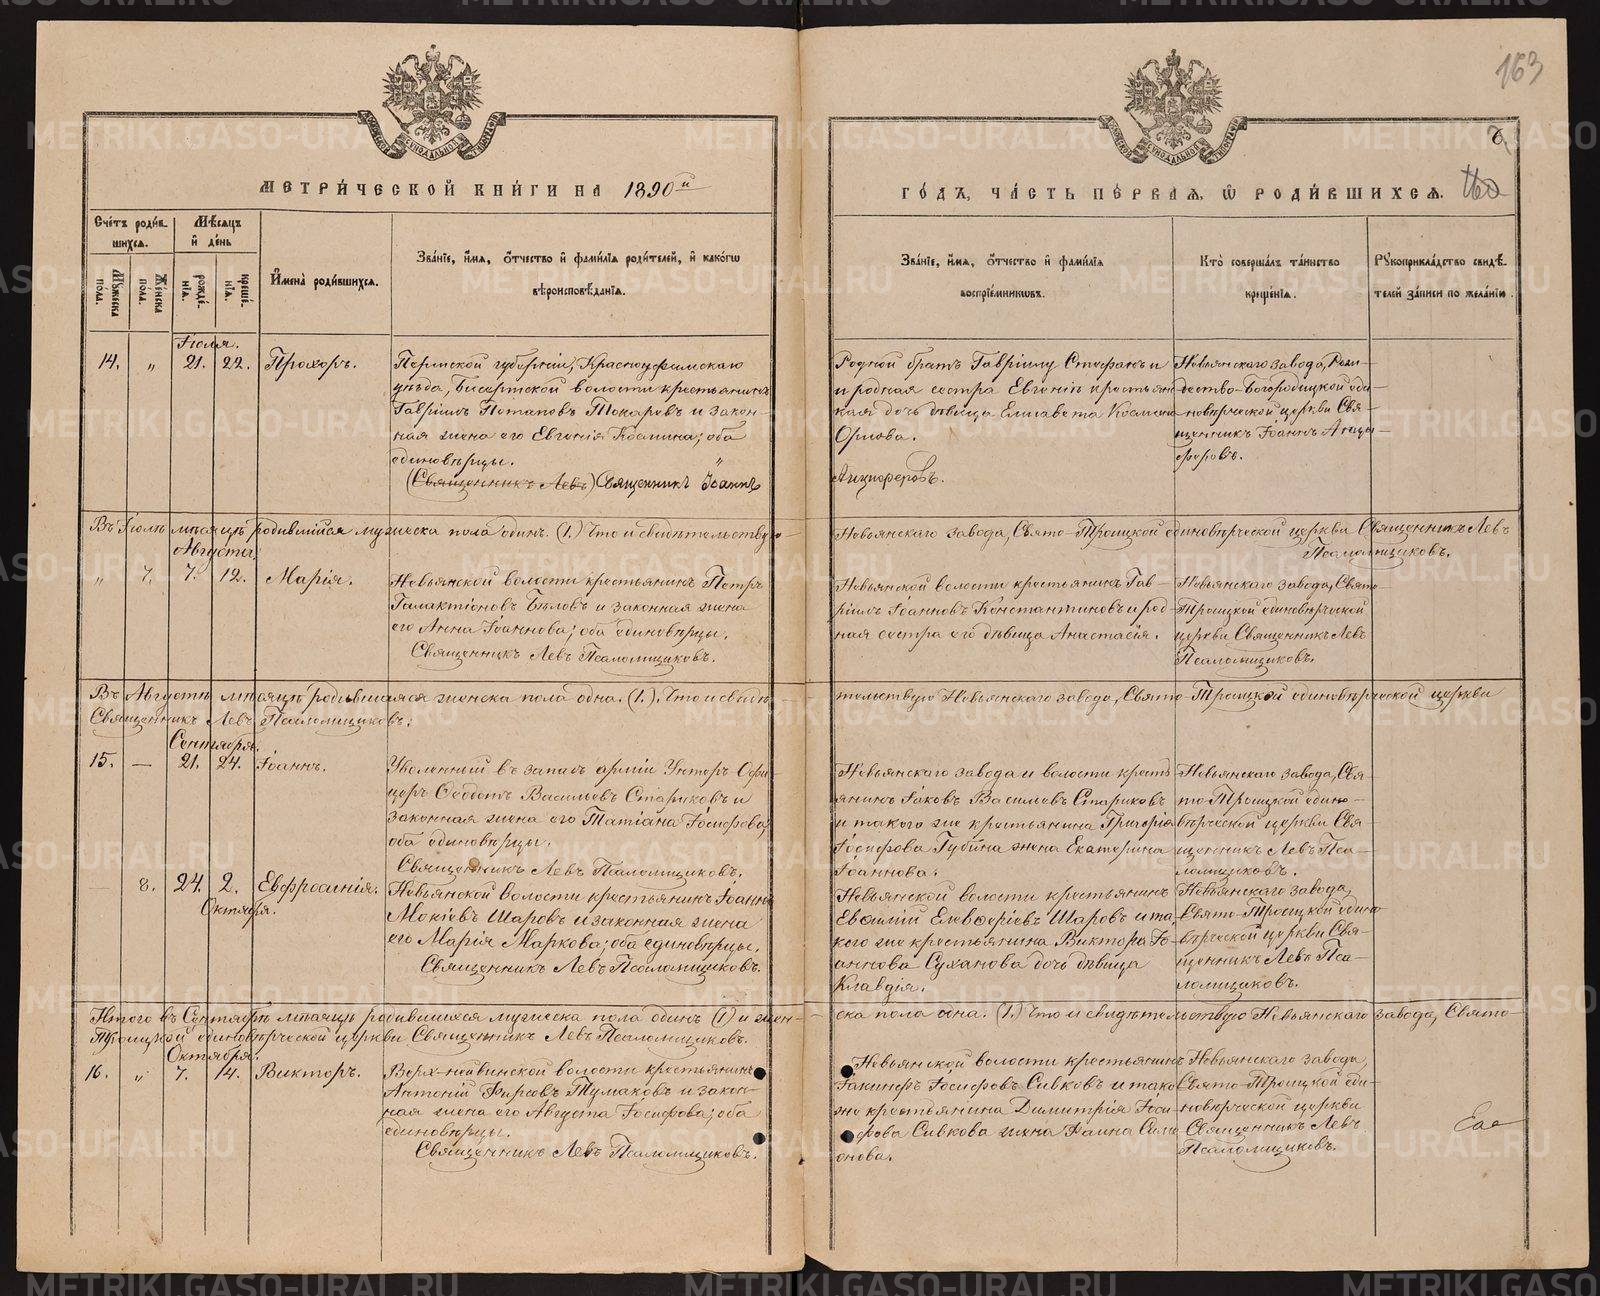 163
6.
МЕТРИ́ЧЕСКОЙ КНИ́ГИ НА 1890й
ГО́ДЪ, ЧА́СТЬ ПЕ́РВАЯ, Ѡ РОДИ́ВШИХСЯ. 160
Сче́тъ роди́в-
шихся.
Му́жеска по́ла.
Же́нска по́ла.
Мѣ́сяцъ и де́нь
рожде́нїя.
креще́нїя.
И҆мена̀ роди́вшихся.
Зва́нїе, и҆́мя, о҆́тчество и҆ фами́лїя роди́телей, и҆ како́гѡ
вѣроисповѣ́данїя.
Зва́нїе, и҆́мя, о҆́тчество и҆ фами́лїя
воспрїе́мниковъ.
Кто̀ соверша́лъ та́инство
креще́нїя.
Рꙋкоприкла́дство свидѣ́-
телей за́писи по жела́нїю.
Іюля.
14. „ 21. 22. Прохоръ.
Пермской губерніи, Красноуфимскаго
уѣзда, Бисертской волости крестьянинъ
Гавріилъ Потаповъ Токаревъ и закон-
ная жена его Евгенія Козмина; оба
единовѣрцы.
(Священникъ Левъ) Священникъ Іоаннъ
Родной братъ Гавріилу Стефанъ и
и родная сестра Евгеніи крестьян-
ская дочь дѣвица Елисавета Космина
Орлова.
Анциферовъ.
Невьянскаго завода, Рож-
дество-Богородицкой еди-
новѣрческой церкви Свя-
щенникъ Іоаннъ Анцы-
феровъ.
Въ Іюлѣ мѣсяцѣ родившійся мужеска пола одинъ. (1.) Что и свидѣтельствую
Невьянскаго завода, Свято-Троицкой единовѣрческой церкви Священникъ Левъ
Псаломщиковъ.
Августа.
„ 7. 7. 12. Марія.
Невьянской волости крестьянинъ Петръ
Галактіоновъ Бѣловъ и законная жена
его Анна Іоаннова; оба единовѣрцы.
Священникъ Левъ Псаломщиковъ.
Невьянской волости крестьянинъ Гав-
ріилъ Іоанновъ Константиновъ и род-
ная сестра его дѣвица Анастасія.
Невьянскаго завода, Свято-
Троицкой единовѣрческой
церкви Священникъ Левъ
Псаломщиковъ.
Въ Августѣ мѣсяцѣ родившаяся женска пола одна. (1.), Что и свидѣ-
тельствую Невьянскаго завода, Свято-Троицкой единовѣрческой церкви
Священникъ Левъ Псаломщиковъ.
Сентября.
15. — 21. 24. Іоаннъ.
Уволенный въ запасъ арміи Унтеръ-Офи-
церъ Ѳеодотъ Васильевъ Стариковъ и
законная жена его Татіана Іосифова;
оба единовѣрцы.
Священникъ Левъ Псаломщиковъ.
Невьянскаго завода и волости кресть-
янинъ Іаковъ Васильевъ Стариковъ
и такого же крестьянина Григорія
Іосифова Губина жена Екатерина
Іоаннова.
Невьянскаго завода, Свя-
то-Троицкой едино-
вѣрческой церкви Свя-
щенникъ Левъ Пса-
ломщиковъ.
— 8. 24. 2. Евфросинія.
Октября.
Невьянской волости крестьянинъ Іоаннъ
Мокіевъ Шаровъ и законная жена
его Марія Маркова; оба единовѣрцы.
Священникъ Левъ Псаломщиковъ.
Невьянской волости крестьянинъ
Евѳимій Елевѳеріевъ Шаровъ и та-
кого же крестьянина Виктора Іо-
аннова Суханова дочь дѣвица
Клавдія.
Невьянскаго завода,
Свято-Троицкой едино-
вѣрческой церкви Свя-
щенникъ Левъ Пса-
ломщиковъ.
Итого въ Сентябрѣ мѣсяцѣ родившихся мужеска пола одинъ (1) и жен-
ска пола одна. (1.) Что и свидѣтельствую Невьянскаго завода, Свято-
Троицкой единовѣрческой церкви Священникъ Левъ Псаломщиковъ.
Октября.
16. „ 7. 14. Викторъ.
Верх-нейвинской волости крестьянинъ
Антоній Фирсовъ Тумаковъ и закон-
ная жена его Августа Іосифова; оба
единовѣрцы.
Священникъ Левъ Псаломщиковъ.
Невьянской волости крестьянинъ
Іакинфъ Іосифовъ Сивковъ и тако-
же крестьянина Димитрія Іоси-
фова Сивкова жена Фаина Сим-
онова.
Невьянскаго завода,
Свято-Троицкой еди-
новѣрческой церкви
Священникъ Левъ
Псаломщиковъ.
METRIKI.GASO-URAL.RU